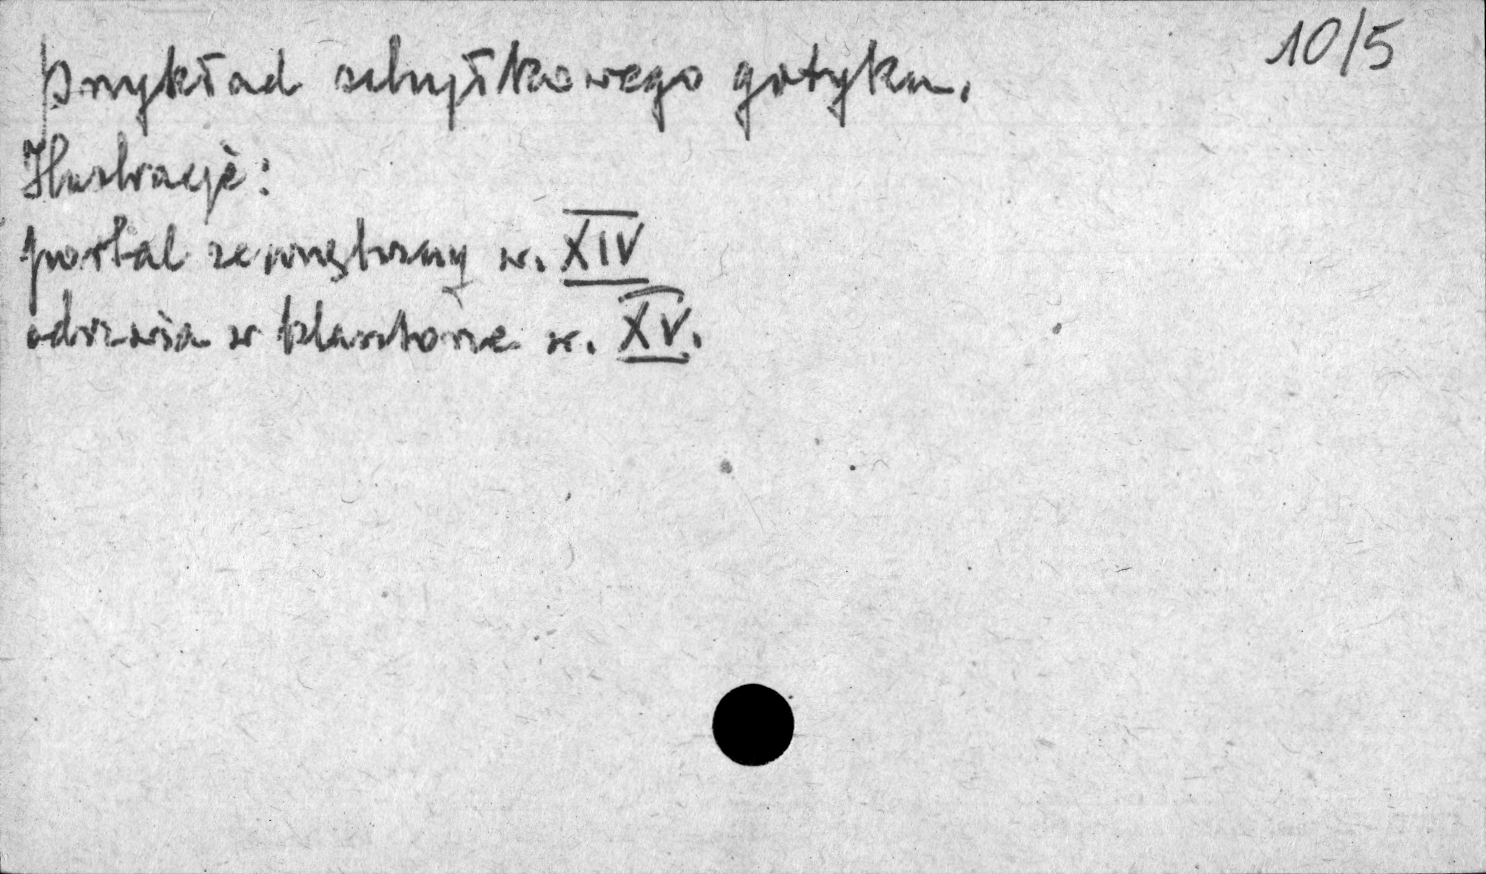 10/5
przykład schyłkowego gotyku.
Ilustracje:
portal zewnętrzny w. XIV
odrzwia w klasztorze w. XV.